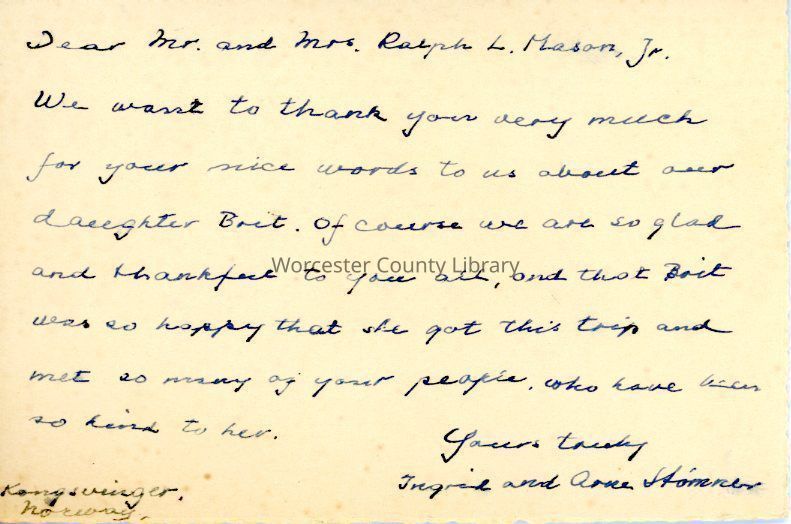 Dear Mr. and Mrs. Ralph L. Mason, Jr.
We want to thank you very much
for your nice words to us about our
daughter Brit. Of course we are so glad
and thankful to you all, and that Brit
was so happy that she got this trip and
met so many of your people, who have been
so kind to her.
Yours truly
Ingrid and Arne Stömner
Kongsvinger.
Norway.
Worcester County Library